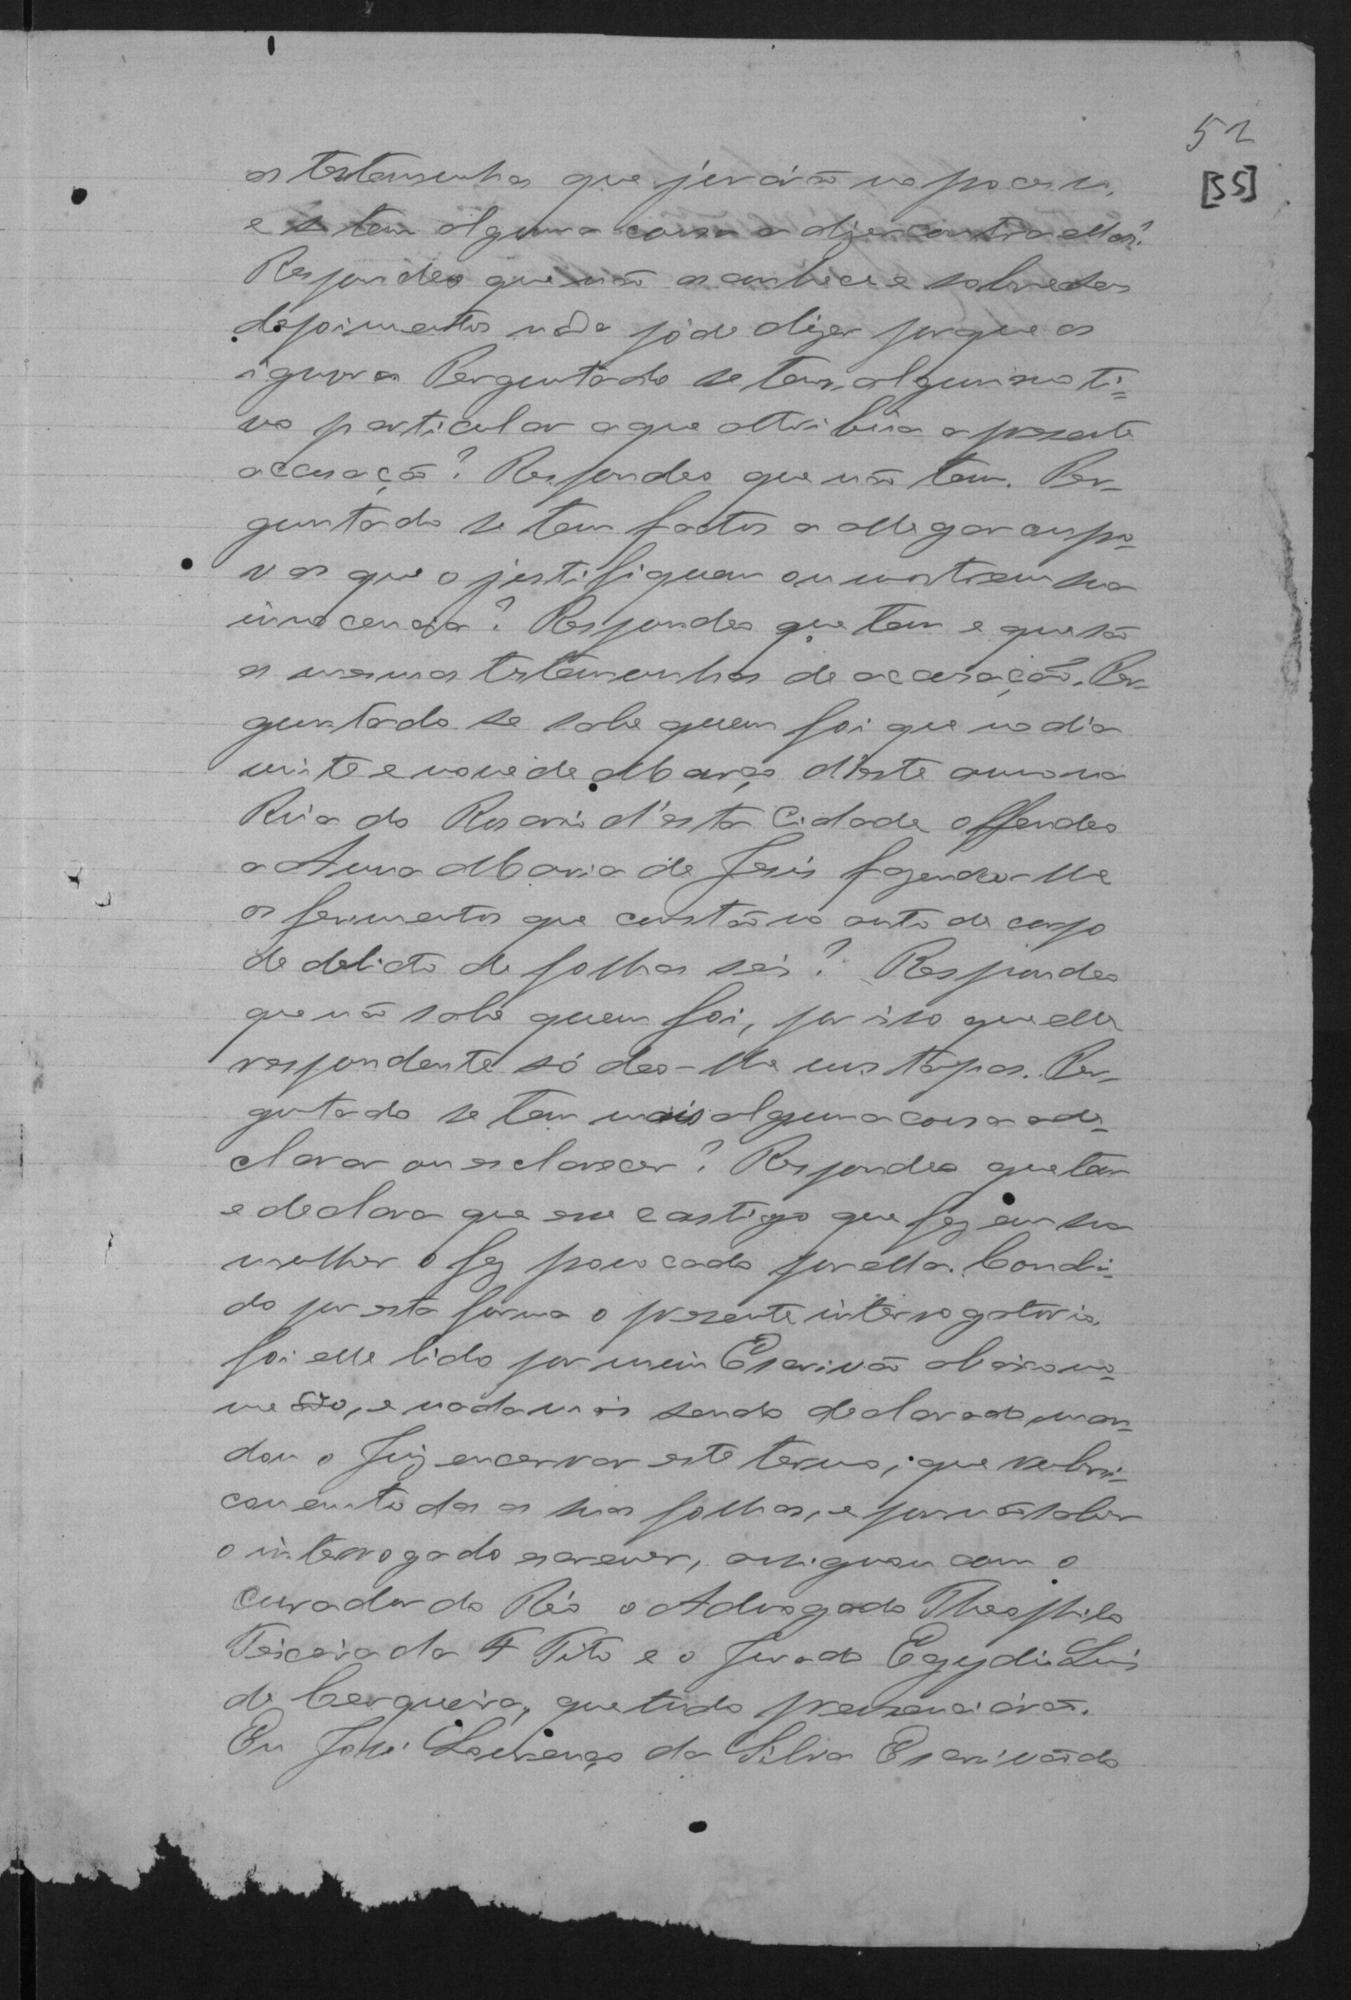 52
[55]
as testemunhas que jurárão no processo,
e se tem alguma cousa a dizer contra ellas?
Respondeo que não as conhece e sobre seus
depoimentos nada póde dizer porque os
ignora. Perguntado se tem algum moti=
vo particular a que attribúa a presente
accusação? Respondeo que não tem. Per-
guntado se tem factos a allegar ou pro-
vas que o justifiquem ou mostrem sua
innocencia? Respondeo que tem e que são
as mesmas testemunhas de accusação. Per-
guntado se sabe quem foi que no dia
vinte e nove de Março d'este anno na
Rúa do Rosario d'esta Cidade offendeo
a Anna Maria de Jesús fazendo-lhe
os ferimentos que constão no auto de corpo
de delicto de folhas seis? Respondeo
que não sabe quem foi, por isso que elle
respondente só deo-lhe uns tapas. Per-
guntado se tem mais alguma cousa a de-
clarar ou esclarecer? Respondeo que tem
e declara que esse castigo que fez em sua
mulher o fez provocado por ella. Conclui-
do por esta forma o presente interrogatorio,
foi elle lido por mim Escrivão abaixo no-
meado, e nada mais sendo declarado, man-
dou o Juiz encerrar este termo, que rubri-
cou em todas as suas folhas, e por não saber
o interrogado escrever, assignou com o
curador do Réo o Advogado Theophilo
Teixeira da F Tito e o Jurado Egydio Luis
de Cerqueira, que tudo presenciárão.
Eu José Lourenço da Silva Escrivão do